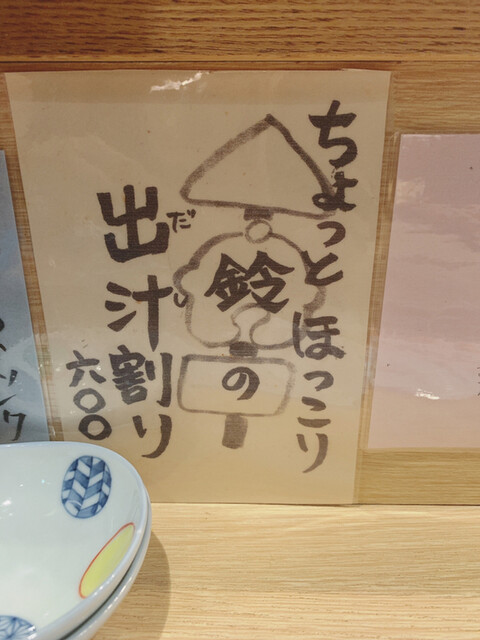 ちょっとほっこり
鈴の
出汁割り
だし
六〇〇